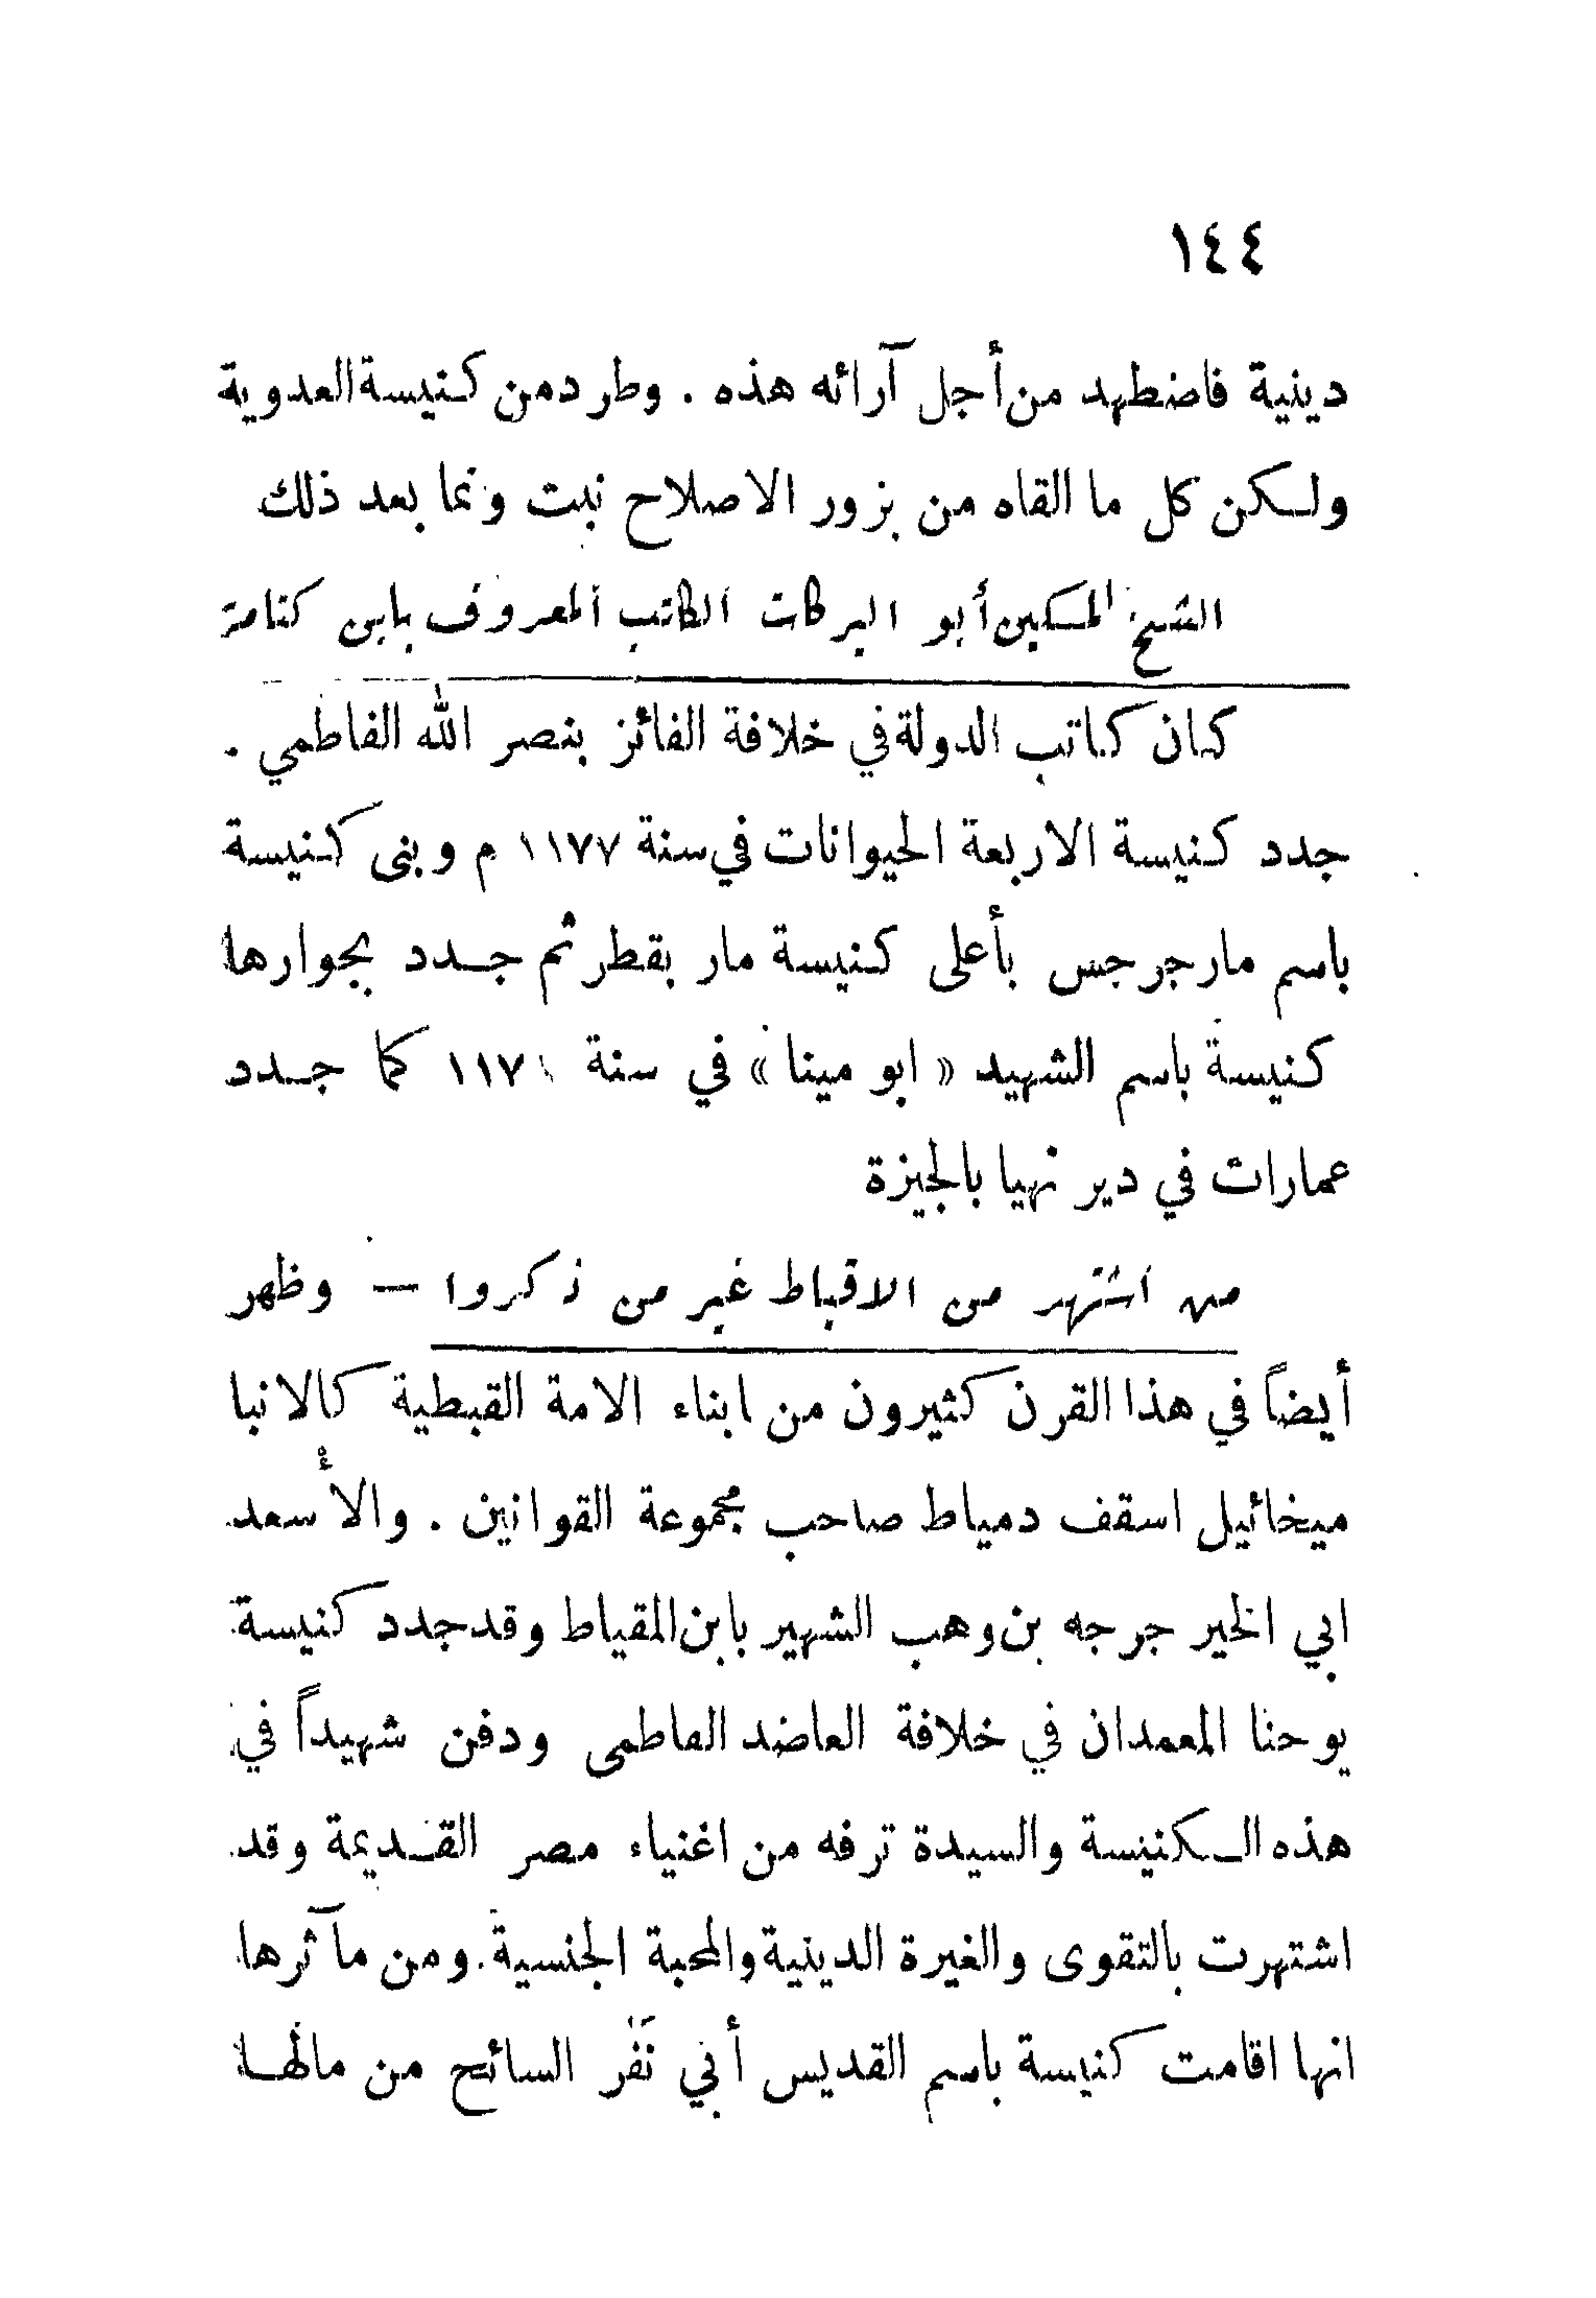 ١٤٤
دينية فاضطهد من أجل آرائه هذه . وطرد من كنيسة العدوية
ولكن كل ما القاه من بزور الاصلاح نبت ونما بعد ذلك
الشيخ المسكين أبو البركات الكاتب المعروف بابن كتامة
كان كاتب الدولة في خلافة الفائز بنصر الله الفاطمي .
جدد كنيسة الاربعة الحيوانات في سنة ١١٧٧ م وبنى كنيسة
باسم مار جرجس بأعلى كنيسة مار بقطر ثم جدد بجوارها
كنيسة باسم الشهيد « ابو مينا » في سنة كما جدد
عمارات في دير نهيا بالجيزة
من اشتهر من الاقباط غير من ذكروا — وظهر
أيضاً في هذا القرن كثيرون من ابناء الامة القبطية كالانبا
ميخائيل اسقف دمياط صاحب مجموعة القوانين . والأسعد
ابي الخير جرجه بن وهب الشهير بابن المقياط وقد جدد كنيسة
يوحنا المعمدان في خلافة العاضد الفاطمى ودفن شهيداً في
هذه الكنيسة والسيدة ترفه من اغنياء مصر القديمة وقد
اشتهرت بالتقوى والغيرة الدينية والمحبة الجنسية. ومن مآثرها
انها اقامت كنيسة باسم القديس أبي نَفْر السائح من مالها